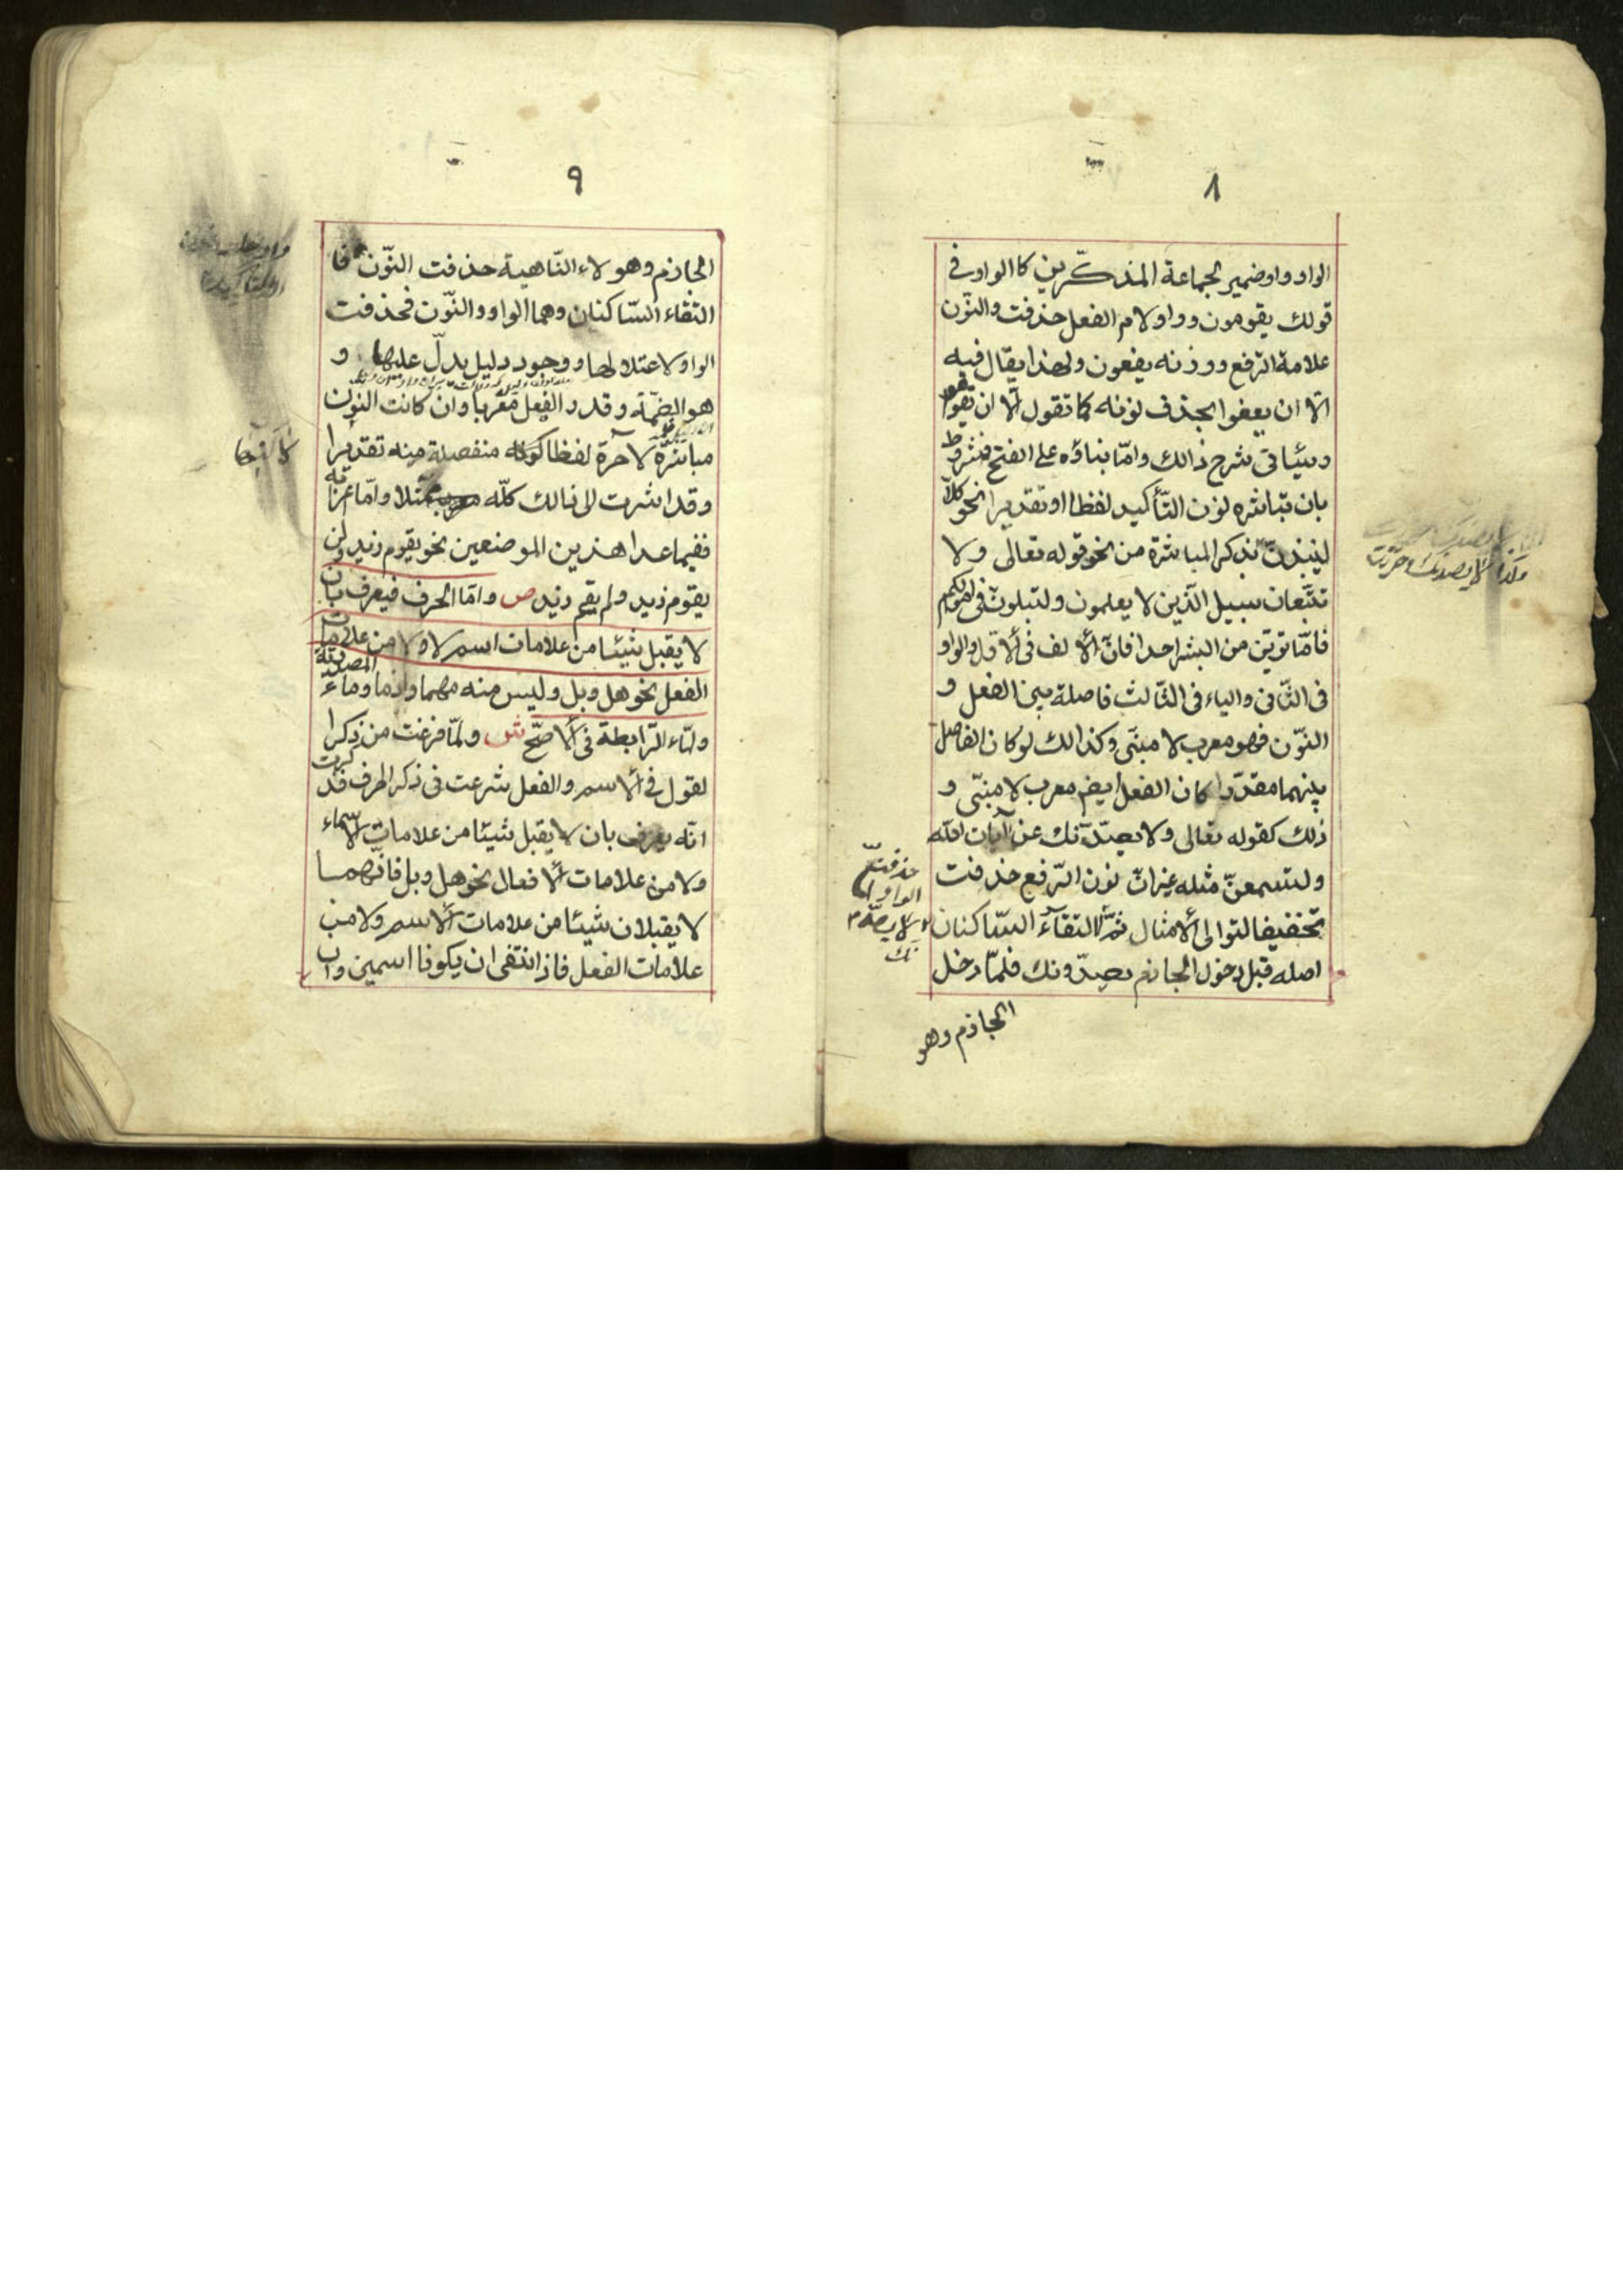 ٨
الواو واو ضمير لجماعة المذكّرين كا الواو فى
قولك يقومون وواو لام الفعل حذفت والنّون
علامة الرّفع ووزنه يفعون ولهذا يقال فيه
الّا ان يعفوا بحذف نونه كما تقول الّا ان يقوموا
وسيئاتى شرح ذالك وامّا بناؤه على الفتح فشروط
بان تباشره نون التّأكيد لفظا او تقديرا نحو كلّا
لينبذنّ بذكر المباشرة من نحو قوله تعالى ولا
تتّبعان سبيل الّذين لا يعلمون ولتبلونّ فى اموالكم
فامّا تريّن من البشر احدا فانّ ألا لف فى ألا وّل والواو
فى الثّانى والياء فى الثّالث فاصلة بين الفعل و
النّون فهو معرب لا مبنّى وكذالك لو كان الفاصل
بينهما مقدّرا كان الفعل ايضم معرب لا مبنّى و
ذلك كقوله تعالى ولا يصدّنّك عن آيات اللّه
ولتسمعنّ مثله غيرانّ نون الرّفع حذفت
تخفيفا لتوالى ألامثال ثمّ التقاء السّاكنان
اصله قبل دخول الجازم يصدّونك فلمّا دخل
حذفت
الواو
لا يصدّ
نك
الجازم وهو
٩
الجازم وهو لاء النّاهية حذفت النّون فا
التقاء السّاكنان وهما الواو والنّون فحذفت
الواو لاعتلالها ووجود دليل يدلّ عليها و
هو الضمّة وقدر الفعل معربا وان كانت النون
مباشرة لآخره لفظا لكونه منفصلة منه تقديرا
وقد اشرت الى ذالك كلّه ممثّلا وامّا اعرابه
ففيما عدا هذين الموضعين نحو يقوم زيد ولن
يقوم زيد ولم يقم زيد ص وامّا الحرف فيعرف بان
لا يقبل شيئا من علامات اسم لا ولا من علامات
الفعل نحو هل وبل وليس منه مهما واذما وما المصدريّة
ولمّاء الرّابطة فى ألا صحّ ش ولمّا فرغت من ذكر ا
لقول فى ألاسم والفعل شرعت فى ذكر الحرف فذكرت
انّه يعرف بان لا يقبل شيئا من علامات الاسماء
ولا من علامات ألا فعال نحو هل وبل فانّهما
لا يقبلان شيئا من علامات ألاسم ولا من
علامات الفعل فاذ انتفى ان يكونا اسمين وان